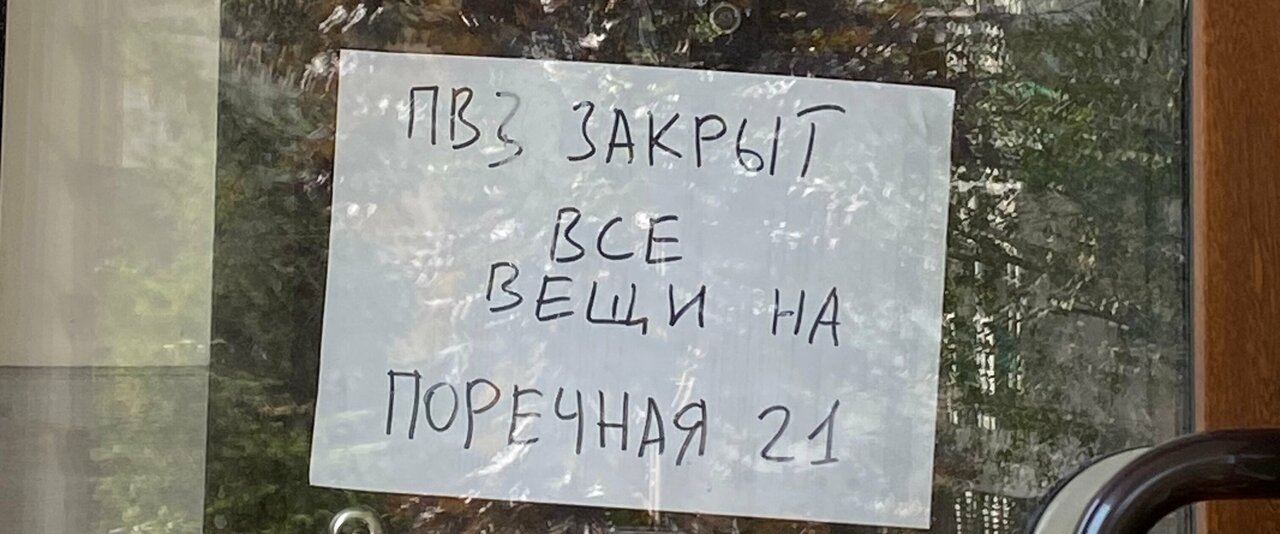 ПВЗ ЗАКРЫТ
ВСЕ
ВЕЩИ НА
ПОРЕЧНАЯ 21